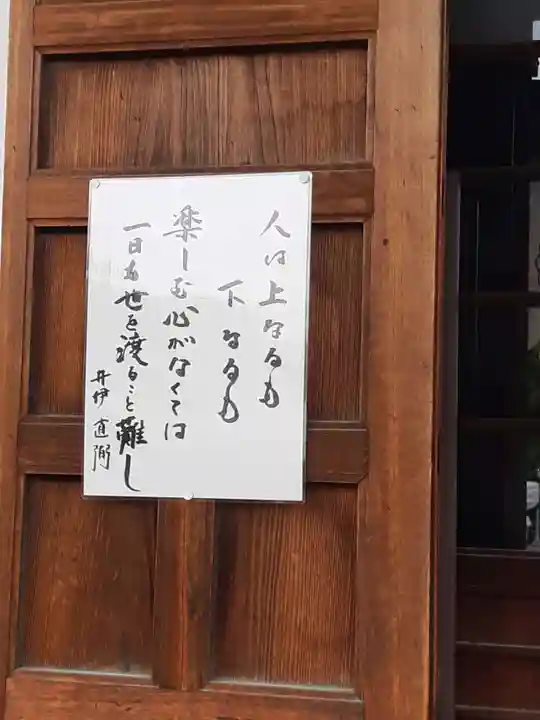 人は上なるも
下なるも
楽しむ心がなくては
一日も世を渡ること難し
井伊直弼